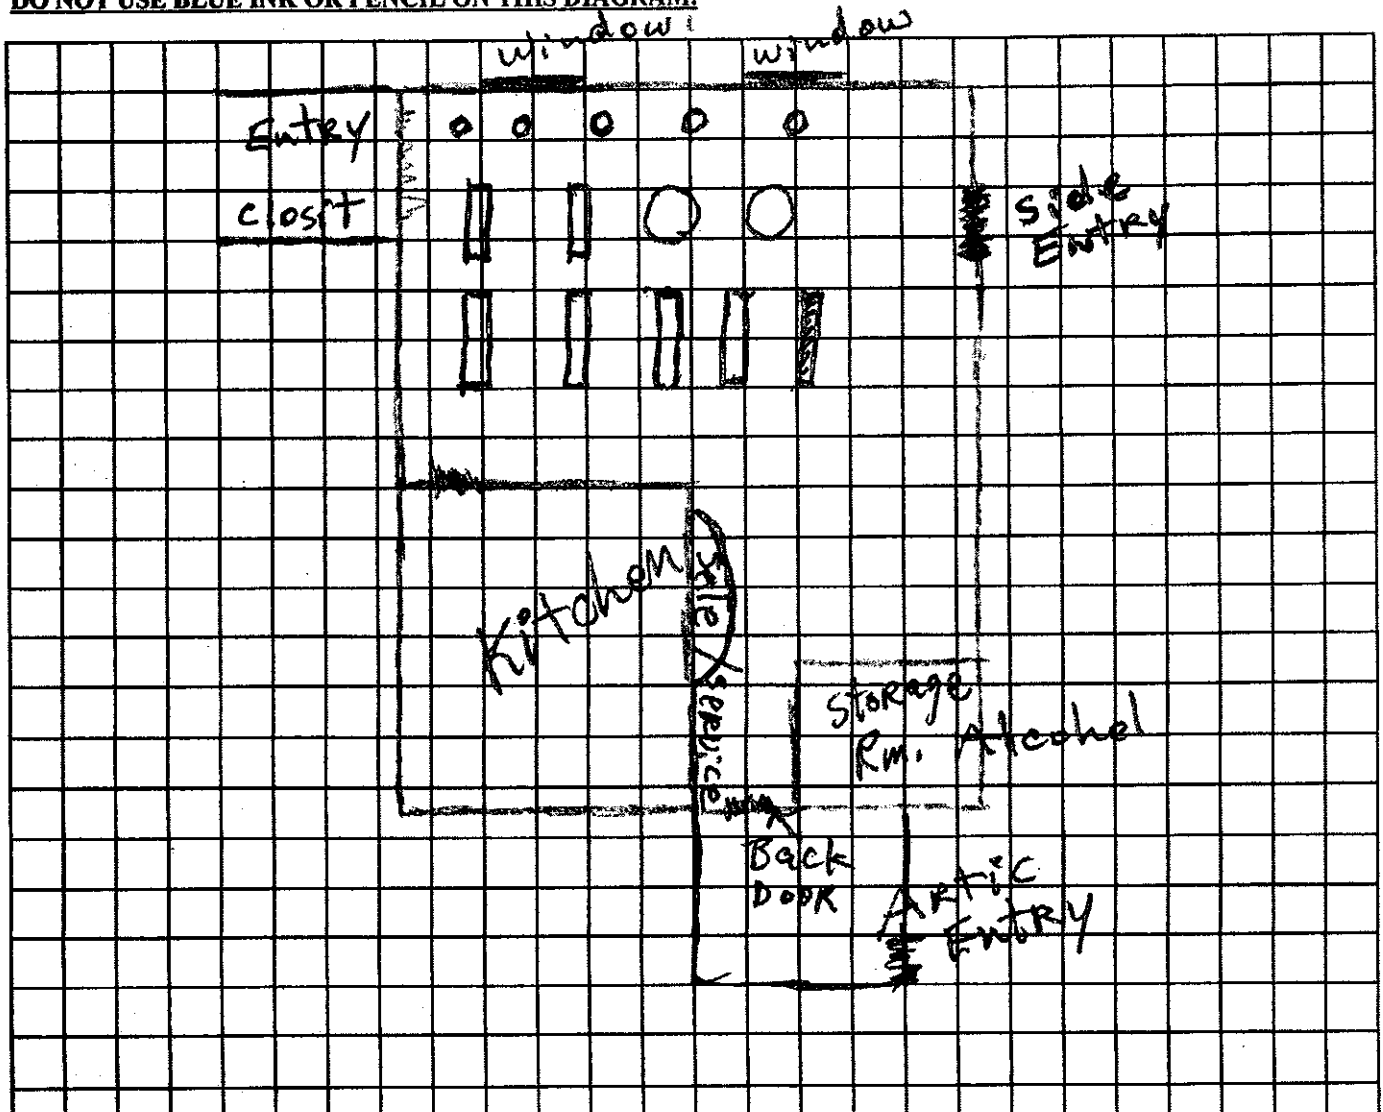 DO NOT USE BLUE INK OR PENCIL ON THIS DIAGRAM!
window
window
Entry
closit
Side
Entry
Kitchen
Sale/Service
Storage
Rm. Alcohol
Back
Door
Artic
Entry